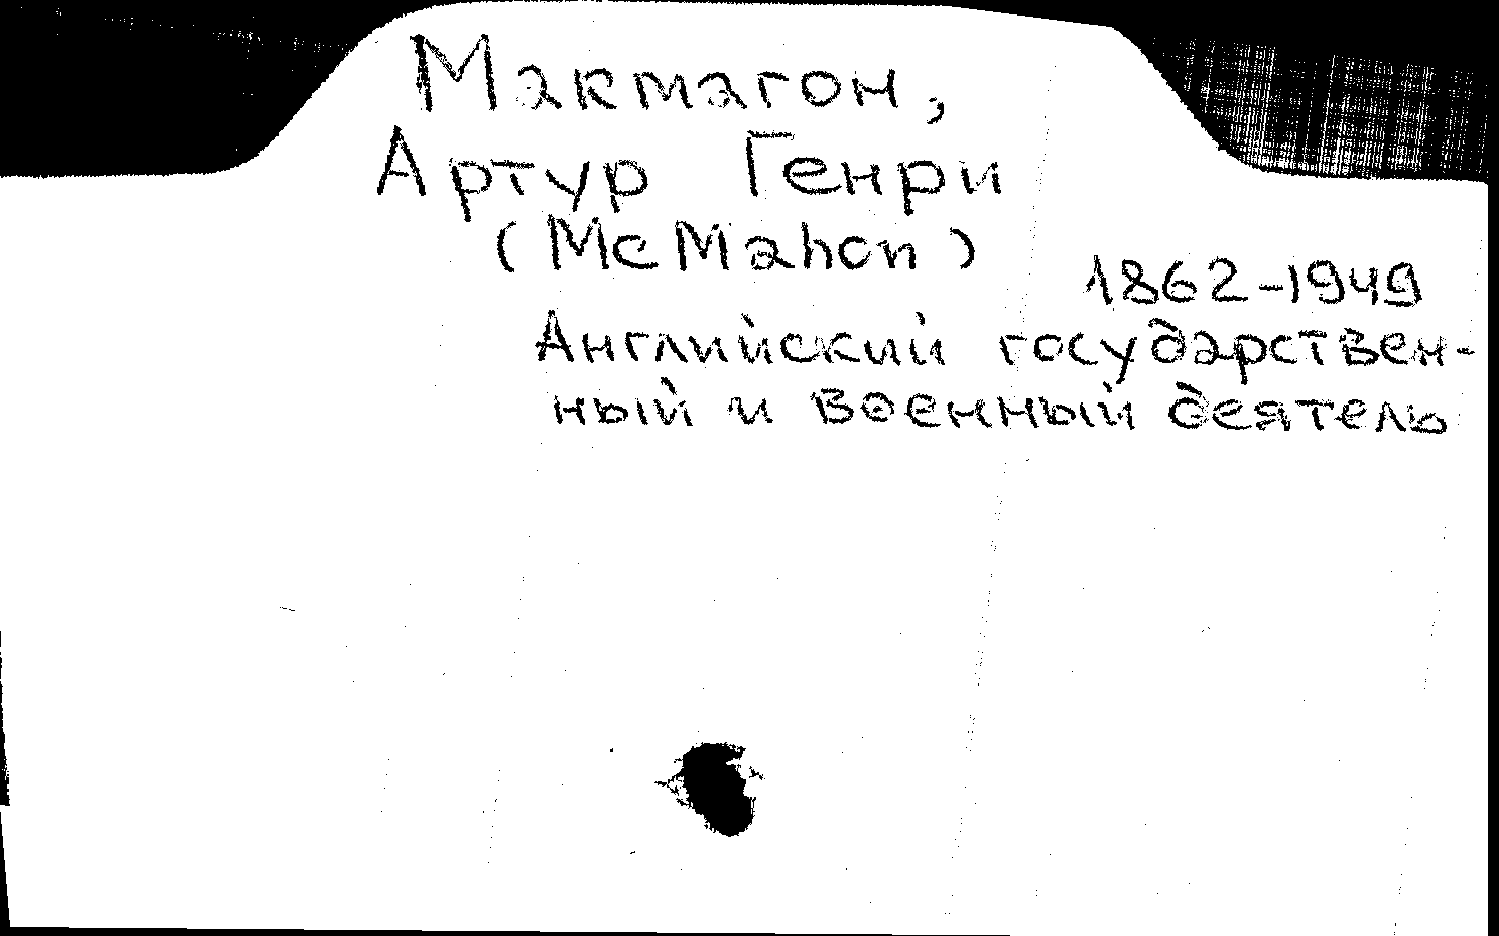 Макмагон,
Артур Генри
(McMahon)
1862-1949
Английский государствен-
ный и военный деятель